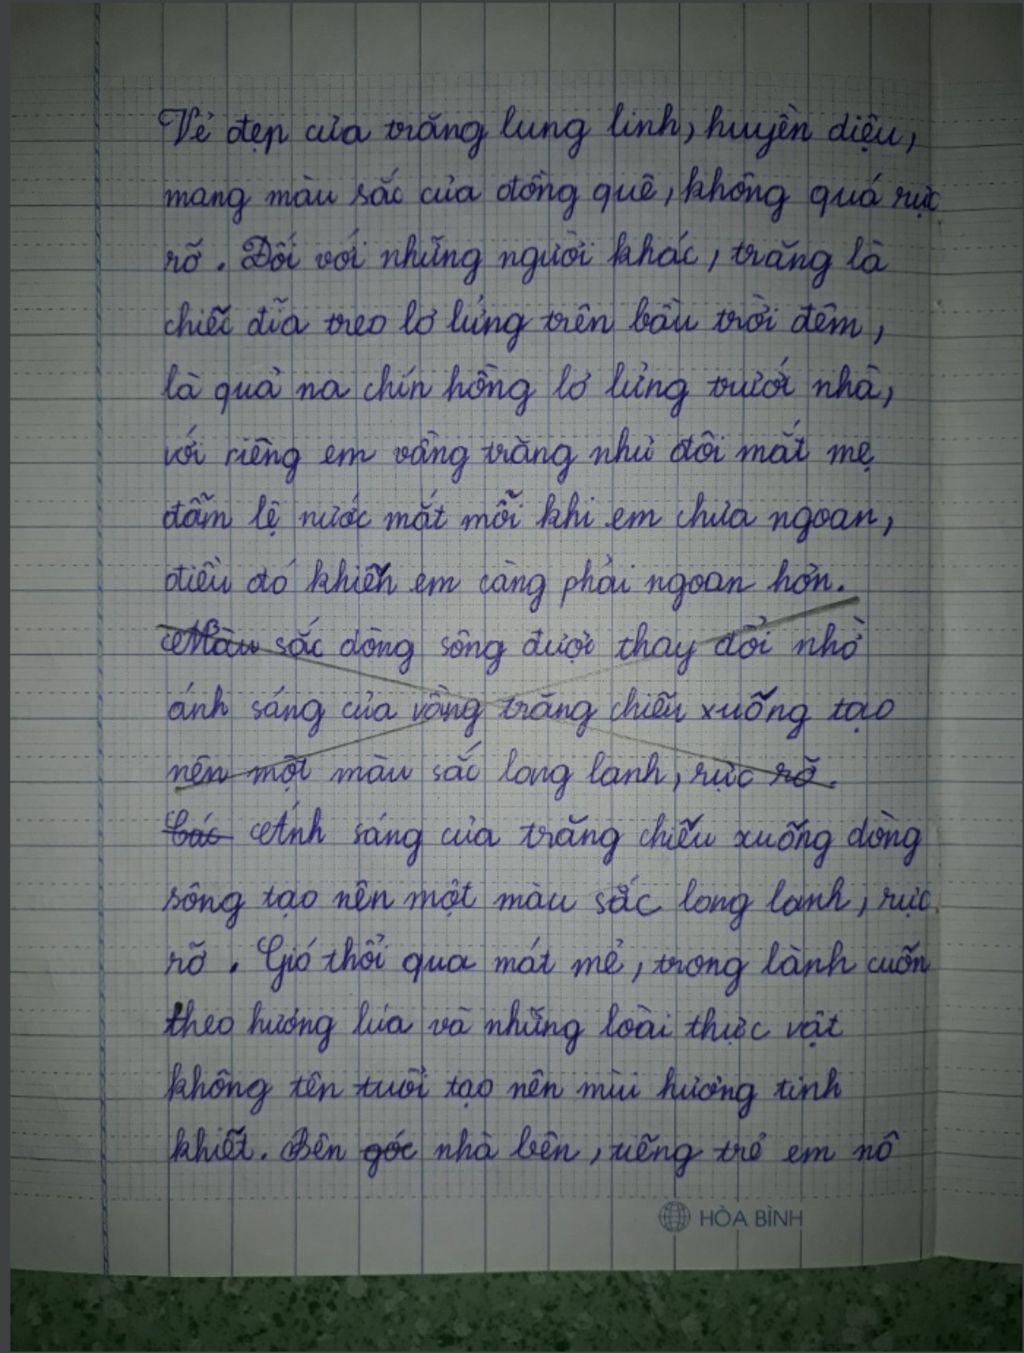 Vẻ đẹp của trăng lung linh, huyền diệu,
mang màu sắc của đồng quê, không quá rực
rỡ. Đối với những người khác, trăng là
chiếc đĩa treo lơ lửng trên bầu trời đêm,
là quả na chín hồng lơ lửng trước nhà,
với riêng em vầng trăng như đôi mắt mẹ
đẫm lệ nước mắt mỗi khi em chưa ngoan,
điều đó khiến em càng phải ngoan hơn.
Màu sắc dòng sông được thay đổi nhờ
ánh sáng của vầng trăng chiếu xuống tạo
nên một màu sắc long lanh, rực rỡ.
Các Ánh sáng của trăng chiếu xuống dòng
sông tạo nên một màu sắc long lanh, rực
rỡ. Gió thổi qua mát mẻ, trong lành cuốn
theo hương lúa và những loài thực vật
không tên tuổi tạo nên mùi hương tinh
khiết. Bên góc nhà bên, tiếng trẻ em nô
HÒA BÌNH